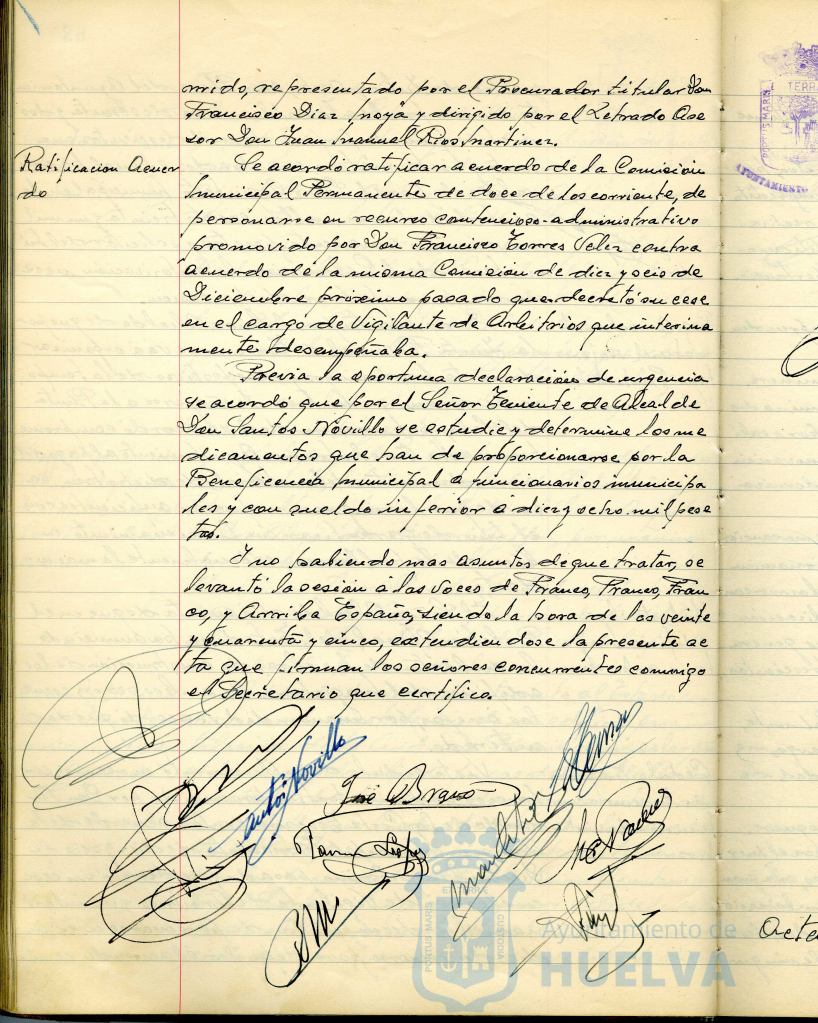 rrido, representado por el Procurador titular Don
Francisco Diaz Moya y dirigido por el Letrado Ase
sor Don Juan Manuel Rios Martinez.
Ratificacion Acuer
do
Se acordó ratificar acuerdo de la Comision
Municipal Permanente de doce de los corriente, de
personarse en recurso contencioso-administrativo
promovido por Don Francisco Torres Velez contra
acuerdo de la misma Comision de diez y seis de
Diciembre próximo pasado que decretó su cese
en el cargo de Vigilante de Arbitrios que interina
mente desempeñaba.
Previa la oportuna declaración de urgencia
se acordó que por el Señor Teniente de Alcalde
Don Santos Novillo se estudie y determine los me
dicamentos que han de proporcionarse por la
Beneficencia Municipal a funcionarios municipa
les y con sueldo inferior á diez y ocho mil pese
tas.
Y no habiendo mas asuntos de que tratar, se
levantó la sesión á las voces de Franco, Franco, Fran
co, y Arriba España, siendo la hora de las veinte
y cuarenta y cinco, extendiendose la presente ac
ta que firman los señores concurrentes conmigo
el Secretario que certifico.
Santos Novillo
José Bravo
TERRA
PORTUS MARIS
AYUNTAMIENTO
PORTUS MARIS
CUSTODIA
Ayuntamiento de
HUELVA
Acta